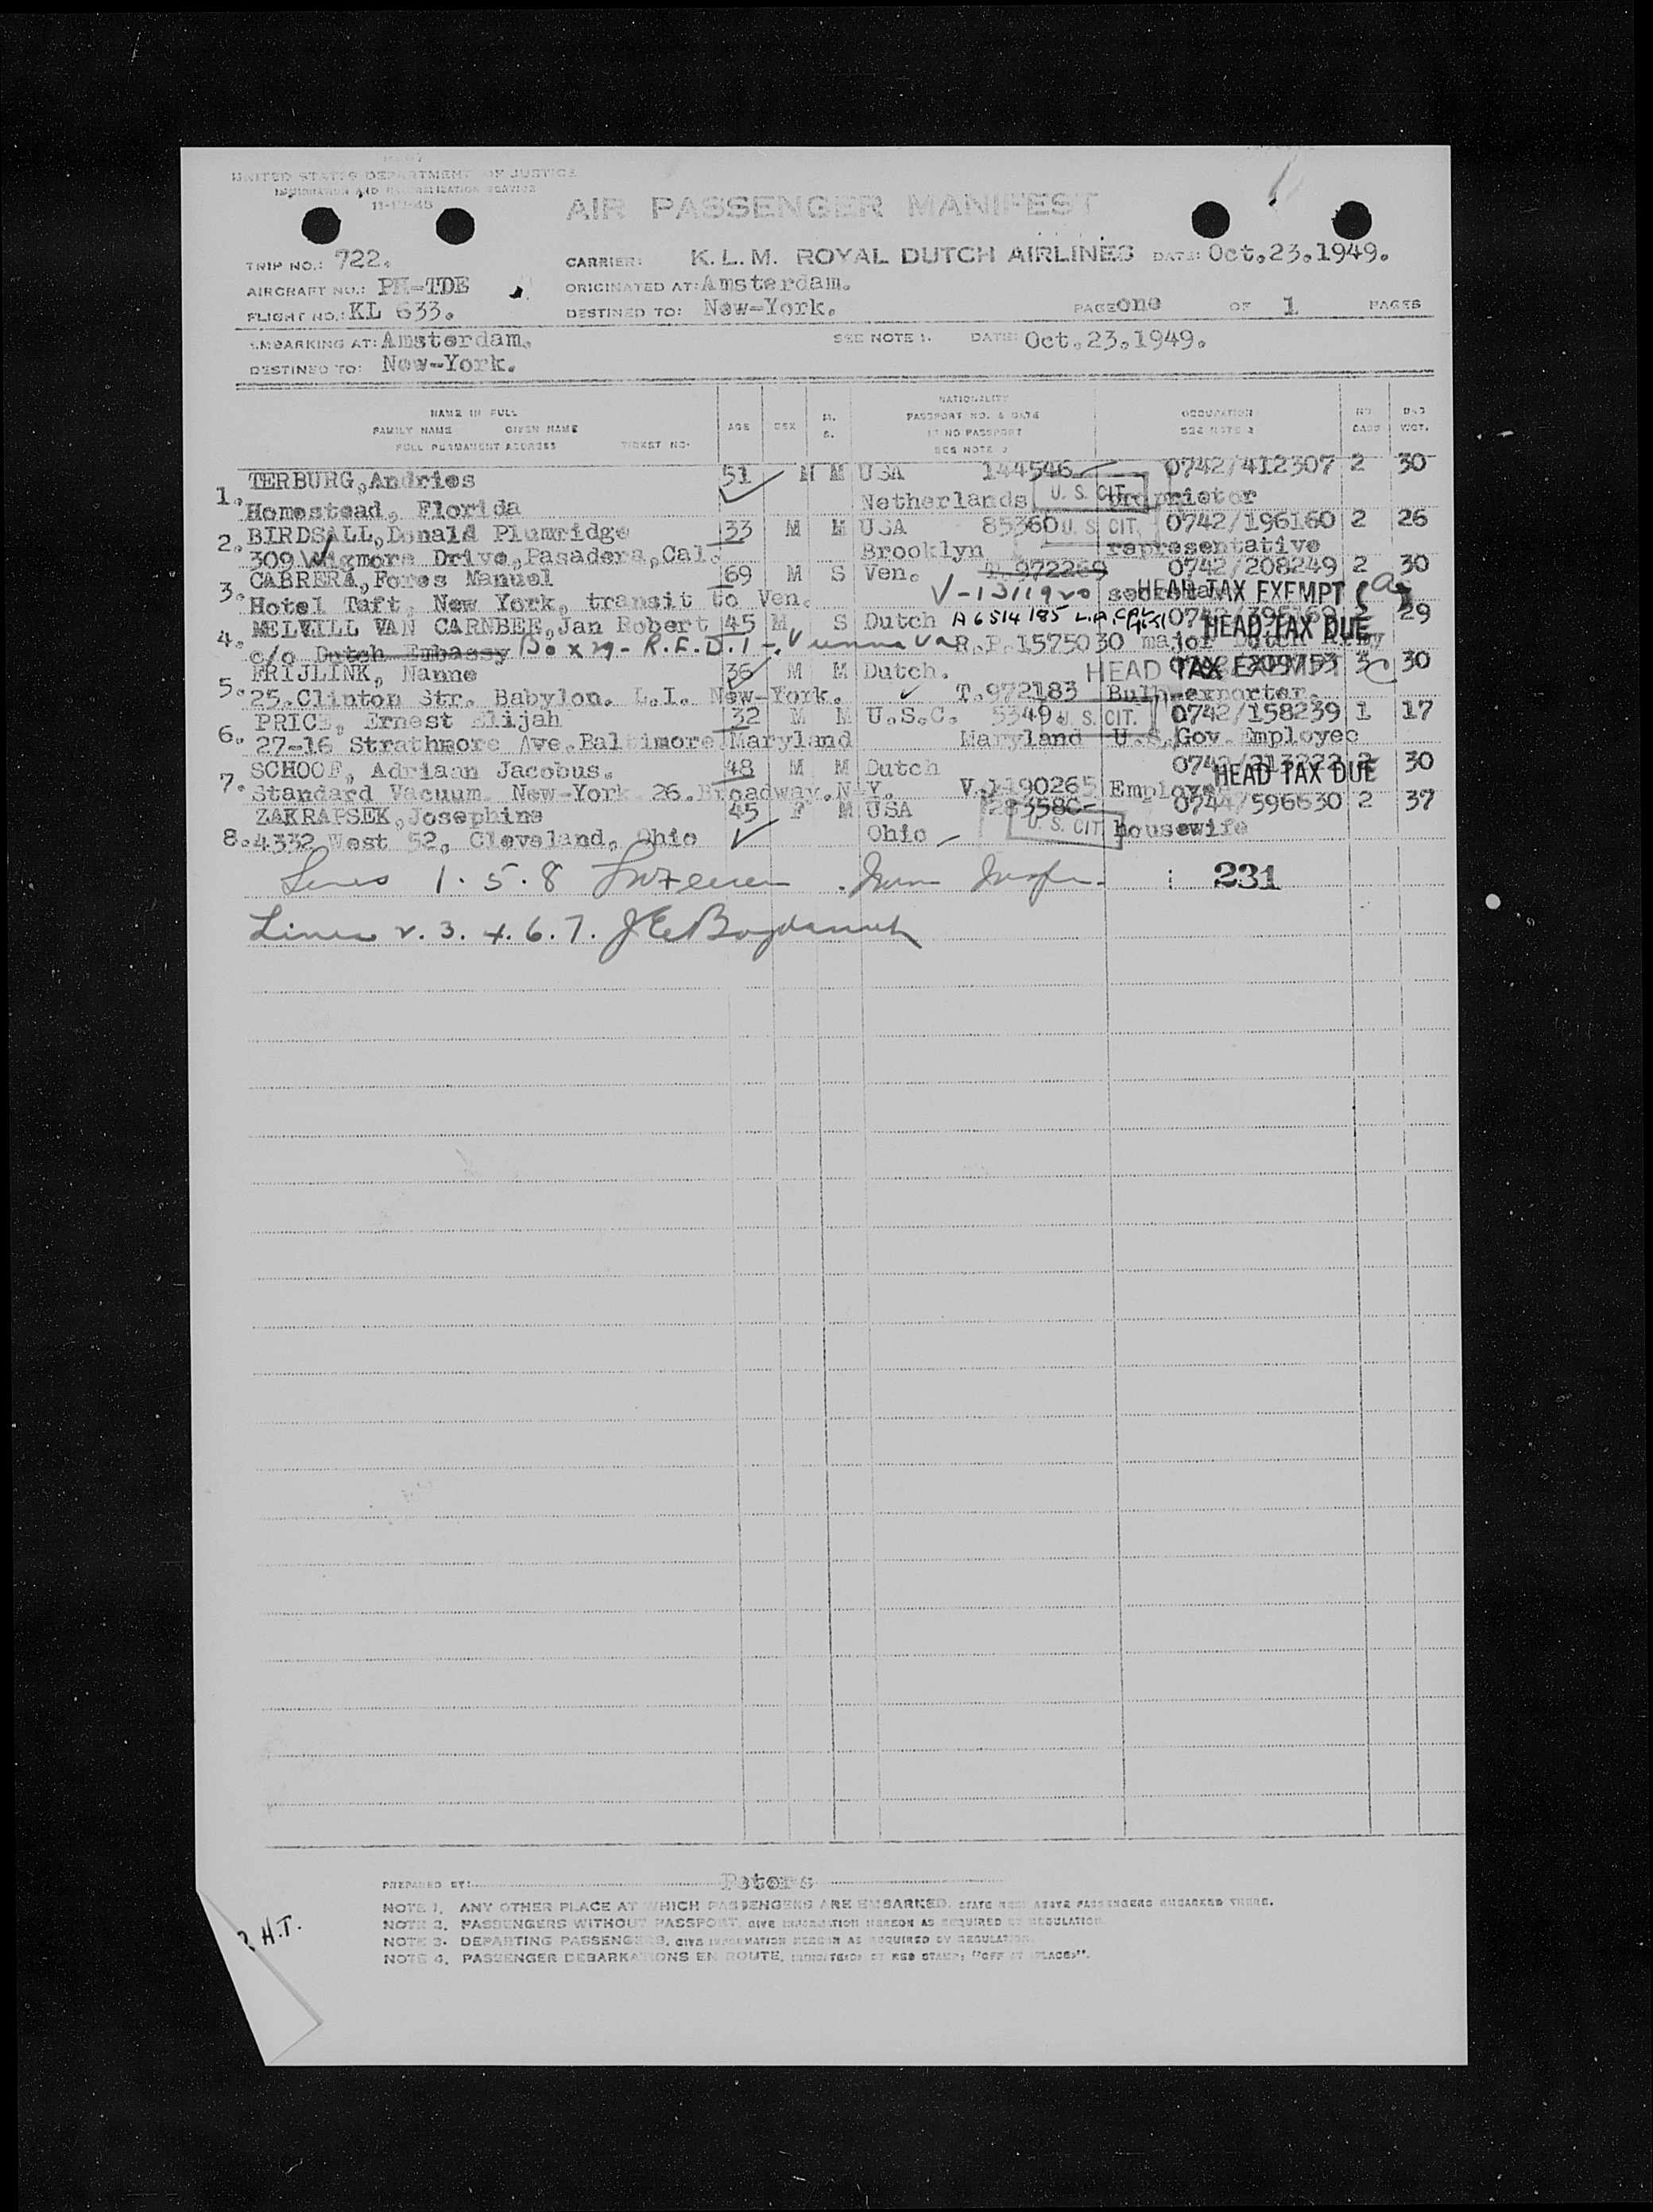 UNITED STATES DEPARTMENT OF JUSTICE
IMMIGRATION AND NATURALIZATION SERVICE
AIR PASSENGER MANIFEST
TRIP NO.: 722. CARRIER: K.L.M. ROYAL DUTCH AIRLINES DATE: Oct.23.1949.
AIRCRAFT NO.: PH-TDE ORIGINATED AT: Amsterdam.
FLIGHT NO.: KL 633. DESTINED TO: New-York. PAGE one OF 1 PAGES
EMBARKING AT: Amsterdam. SEE NOTE 1. DATE: Oct.23.1949.
DESTINED TO: New-York.
NAME IN FULL
FAMILY NAME GIVEN NAME
FULL PERMANENT ADDRESS TICKET NO.
AGE SEX M. S.
NATIONALITY
PASSPORT NO. & DATE
IF NO PASSPORT
SEE NOTE 2
OCCUPATION
SEE NOTE 2
NO. BAGS
BAG WGT.
TERBURG,Andries 51 M M USA 144546 0742/412307 2 30
1. Homestead, Florida Netherlands U. S. CIT. proprietor
BIRDSALL,Donald Plumridge 33 M M USA 85360 U. S. CIT. 0742/196160 2 26
2. 309 Wigmore Drive,Pasadera,Cal. Brooklyn representative
CABRERA,Fores Manuel 69 M S Ven. T.972269 0742/208249 2 30
3. Hotel Taft, New York, transit to Ven. V-1311920 HEAD TAX EXEMPT
MELVILL VAN CARNBEE,Jan Robert 45 M S Dutch A6514185 29
4. c/o Dutch Embassy Box 29 - R.F.D.1 - Vienna Va R.P.1575030 major Dutch Army HEAD TAX DUE
FRIJLINK, Nanne 36 M M Dutch. HEAD TAX EXEMPT 3 30
5. 25.Clinton Str. Babylon. L.I. New-York. T.972183 Bulb-exporter.
PRICE, Ernest Elijah 32 M M U.S.C. 5349 U. S. CIT. 0742/158239 1 17
6. 27-16 Strathmore Ave.Baltimore Maryland Maryland U.S.Gov.Employee
SCHOOF, Adriaan Jacobus. 48 M M Dutch 2 30
7. Standard Vacuum. New-York 26.Broadway.N.Y. V.1190265 Employee HEAD TAX DUE
ZAKRAPSEK,Josephine 45 F M USA 283580 0744/596630 2 37
8. 4332 West 52, Cleveland, Ohio Ohio U. S. CIT. housewife
Lines 1. 5. 8 231
Lines 2. 3. 4. 6. 7.
PREPARED BY: Peters
NOTE 1. ANY OTHER PLACE AT WHICH PASSENGERS ARE EMBARKED, STATE NEXT ABOVE PASSENGERS EMBARKED THERE.
NOTE 2. PASSENGERS WITHOUT PASSPORT, GIVE INFORMATION HEREON AS REQUIRED BY REGULATION.
NOTE 3. DEPARTING PASSENGERS, GIVE INFORMATION HEREON AS REQUIRED BY REGULATION.
NOTE 4. PASSENGER DEBARKATIONS EN ROUTE, INDICATED BY RED STAMP: "OFF AT (PLACE)".
H.T.